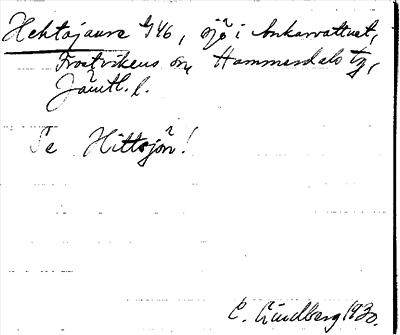 Hektojaure 946, sjö i Ankarvattnet,
Frostvikens sn, Hammerdals tg,
Jämtl. l.
Se Hittsjön!
C. Lindberg 1930.